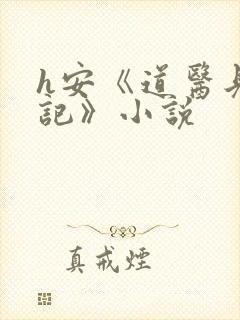 h安《道醫
記》小說
真戒煙